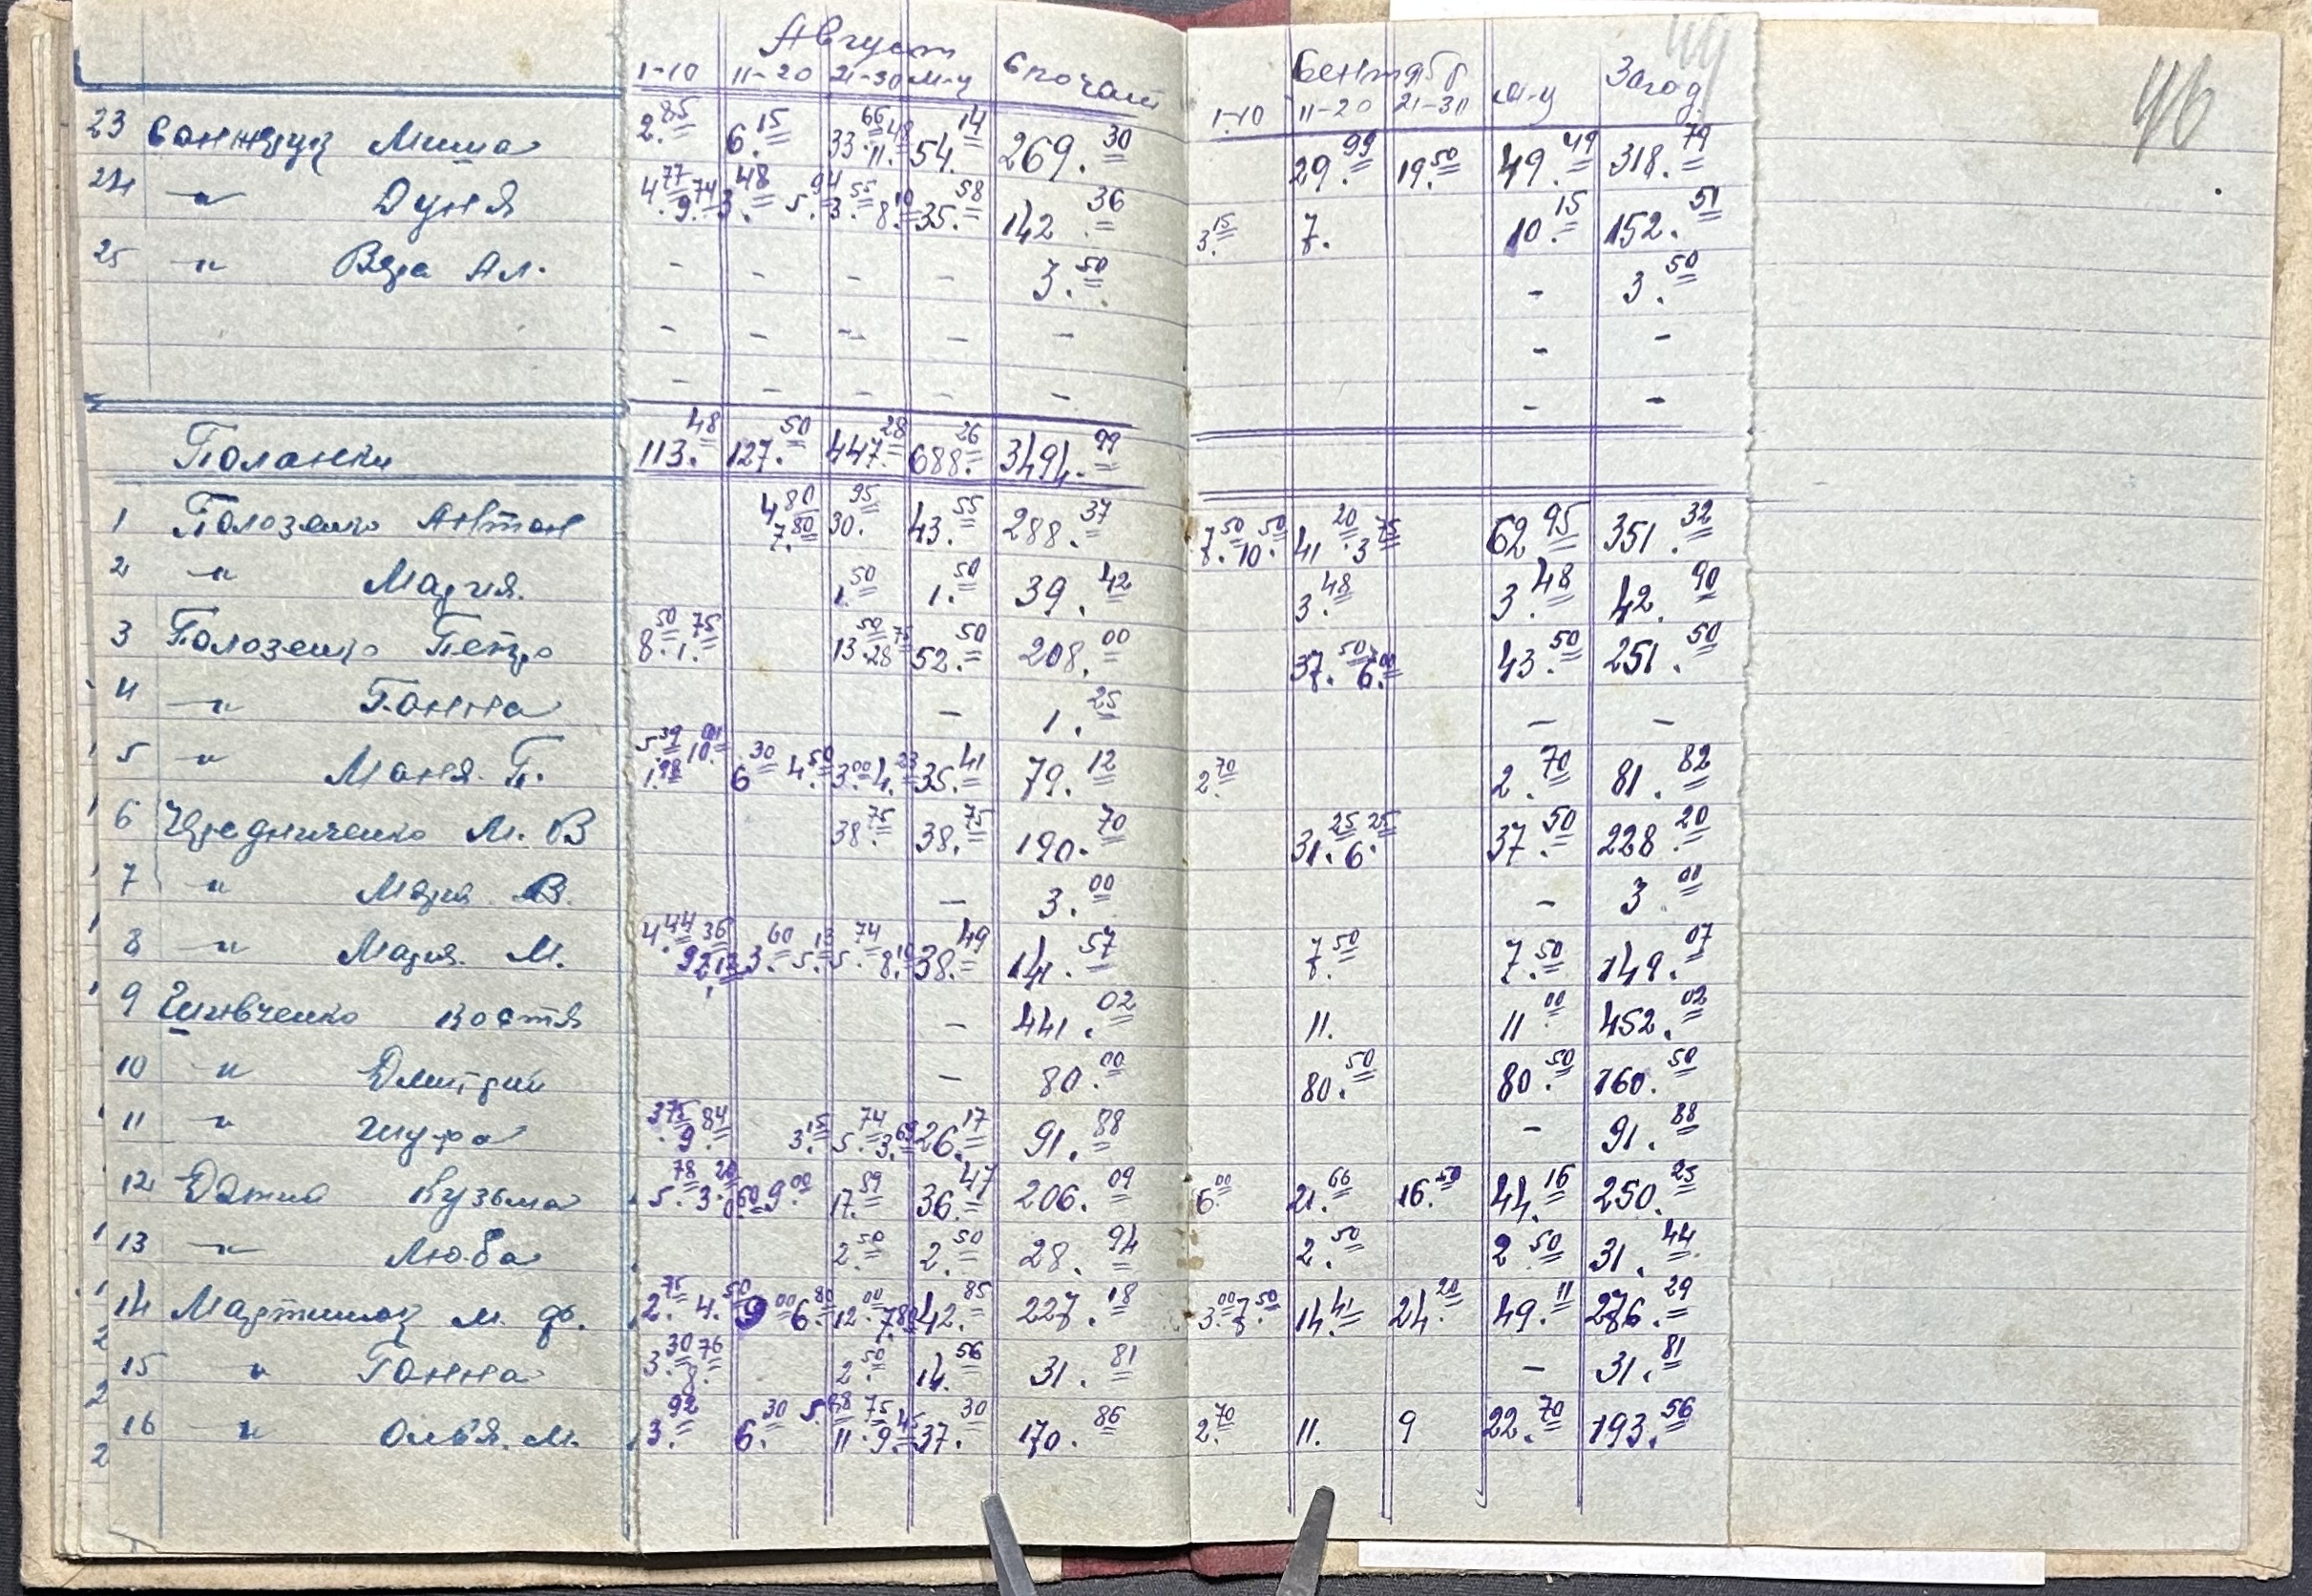 Август Спочат Сентябр Загод 44 46
1-10 11-20 21-30 м-ц 1-10 11-20 21-30 м-ц
23 Миша 2.85 6.15 33.66 11.48 54.14 269.30 29.99 19.50 49.49 318.79
24 -"- Дуня 4.77 9.74 3.48 5.94 3.55 8.10 35.58 142.36 3.15 7. 10.15 152.51
25 -"- Вера Ал. - - - - 3.50 - 3.50
- - - - - - -
- - - - - - -
Поланки 113.48 127.50 447.28 688.26 3494.99
1 Полозенко Антон 4.80 7.80 30.95 43.55 288.37 7.50 10.50 41.20 3.75 62.95 351.32
2 -"- Мария. 1.50 1.50 39.42 3.48 3.48 42.90
3 Полозенко Петро 8.50 1.75 13.50 28.75 52.50 208.00 37.50 6.00 43.50 251.50
4 -"- Ганна - 1.25 - -
5 -"- Маня. П. 5.39 10.01 1.98 6.30 4.50 3.00 4.23 35.41 79.12 2.70 2.70 81.82
6 Чередниченко М. В 38.75 38.75 190.70 31.25 6.25 37.50 228.20
7 -"- Мария В. - 3.00 - 3.00
8 -"- Мария. М. 4.44 9.36 3.60 5.13 5.74 8.10 38.49 141.57 7.50 7.50 149.07
9 Костя - 441.02 11. 11.00 452.02
10 -"- Дмитрий - 80.00 80.50 80.50 160.50
11 -"- Шура 3.75 9.84 3.15 5.74 3.69 26.17 91.88 - 91.88
12 Кузьма 5.78 3.20 9.00 17.89 36.47 206.09 6.00 21.66 16.50 44.16 250.25
13 -"- Люба 2.50 2.50 28.94 2.50 2.50 31.44
14 Мартинюк М. Ф. 2.75 4.50 9.00 6.80 12.00 7.80 42.85 227.18 3.00 7.50 14.41 24.20 49.11 276.29
15 " Ганна 3.30 8.76 2.50 14.56 31.81 - 31.81
16 " Олья. М. 3.92 6.30 5.88 11.75 9.45 37.30 170.86 2.70 11. 9 22.70 193.56